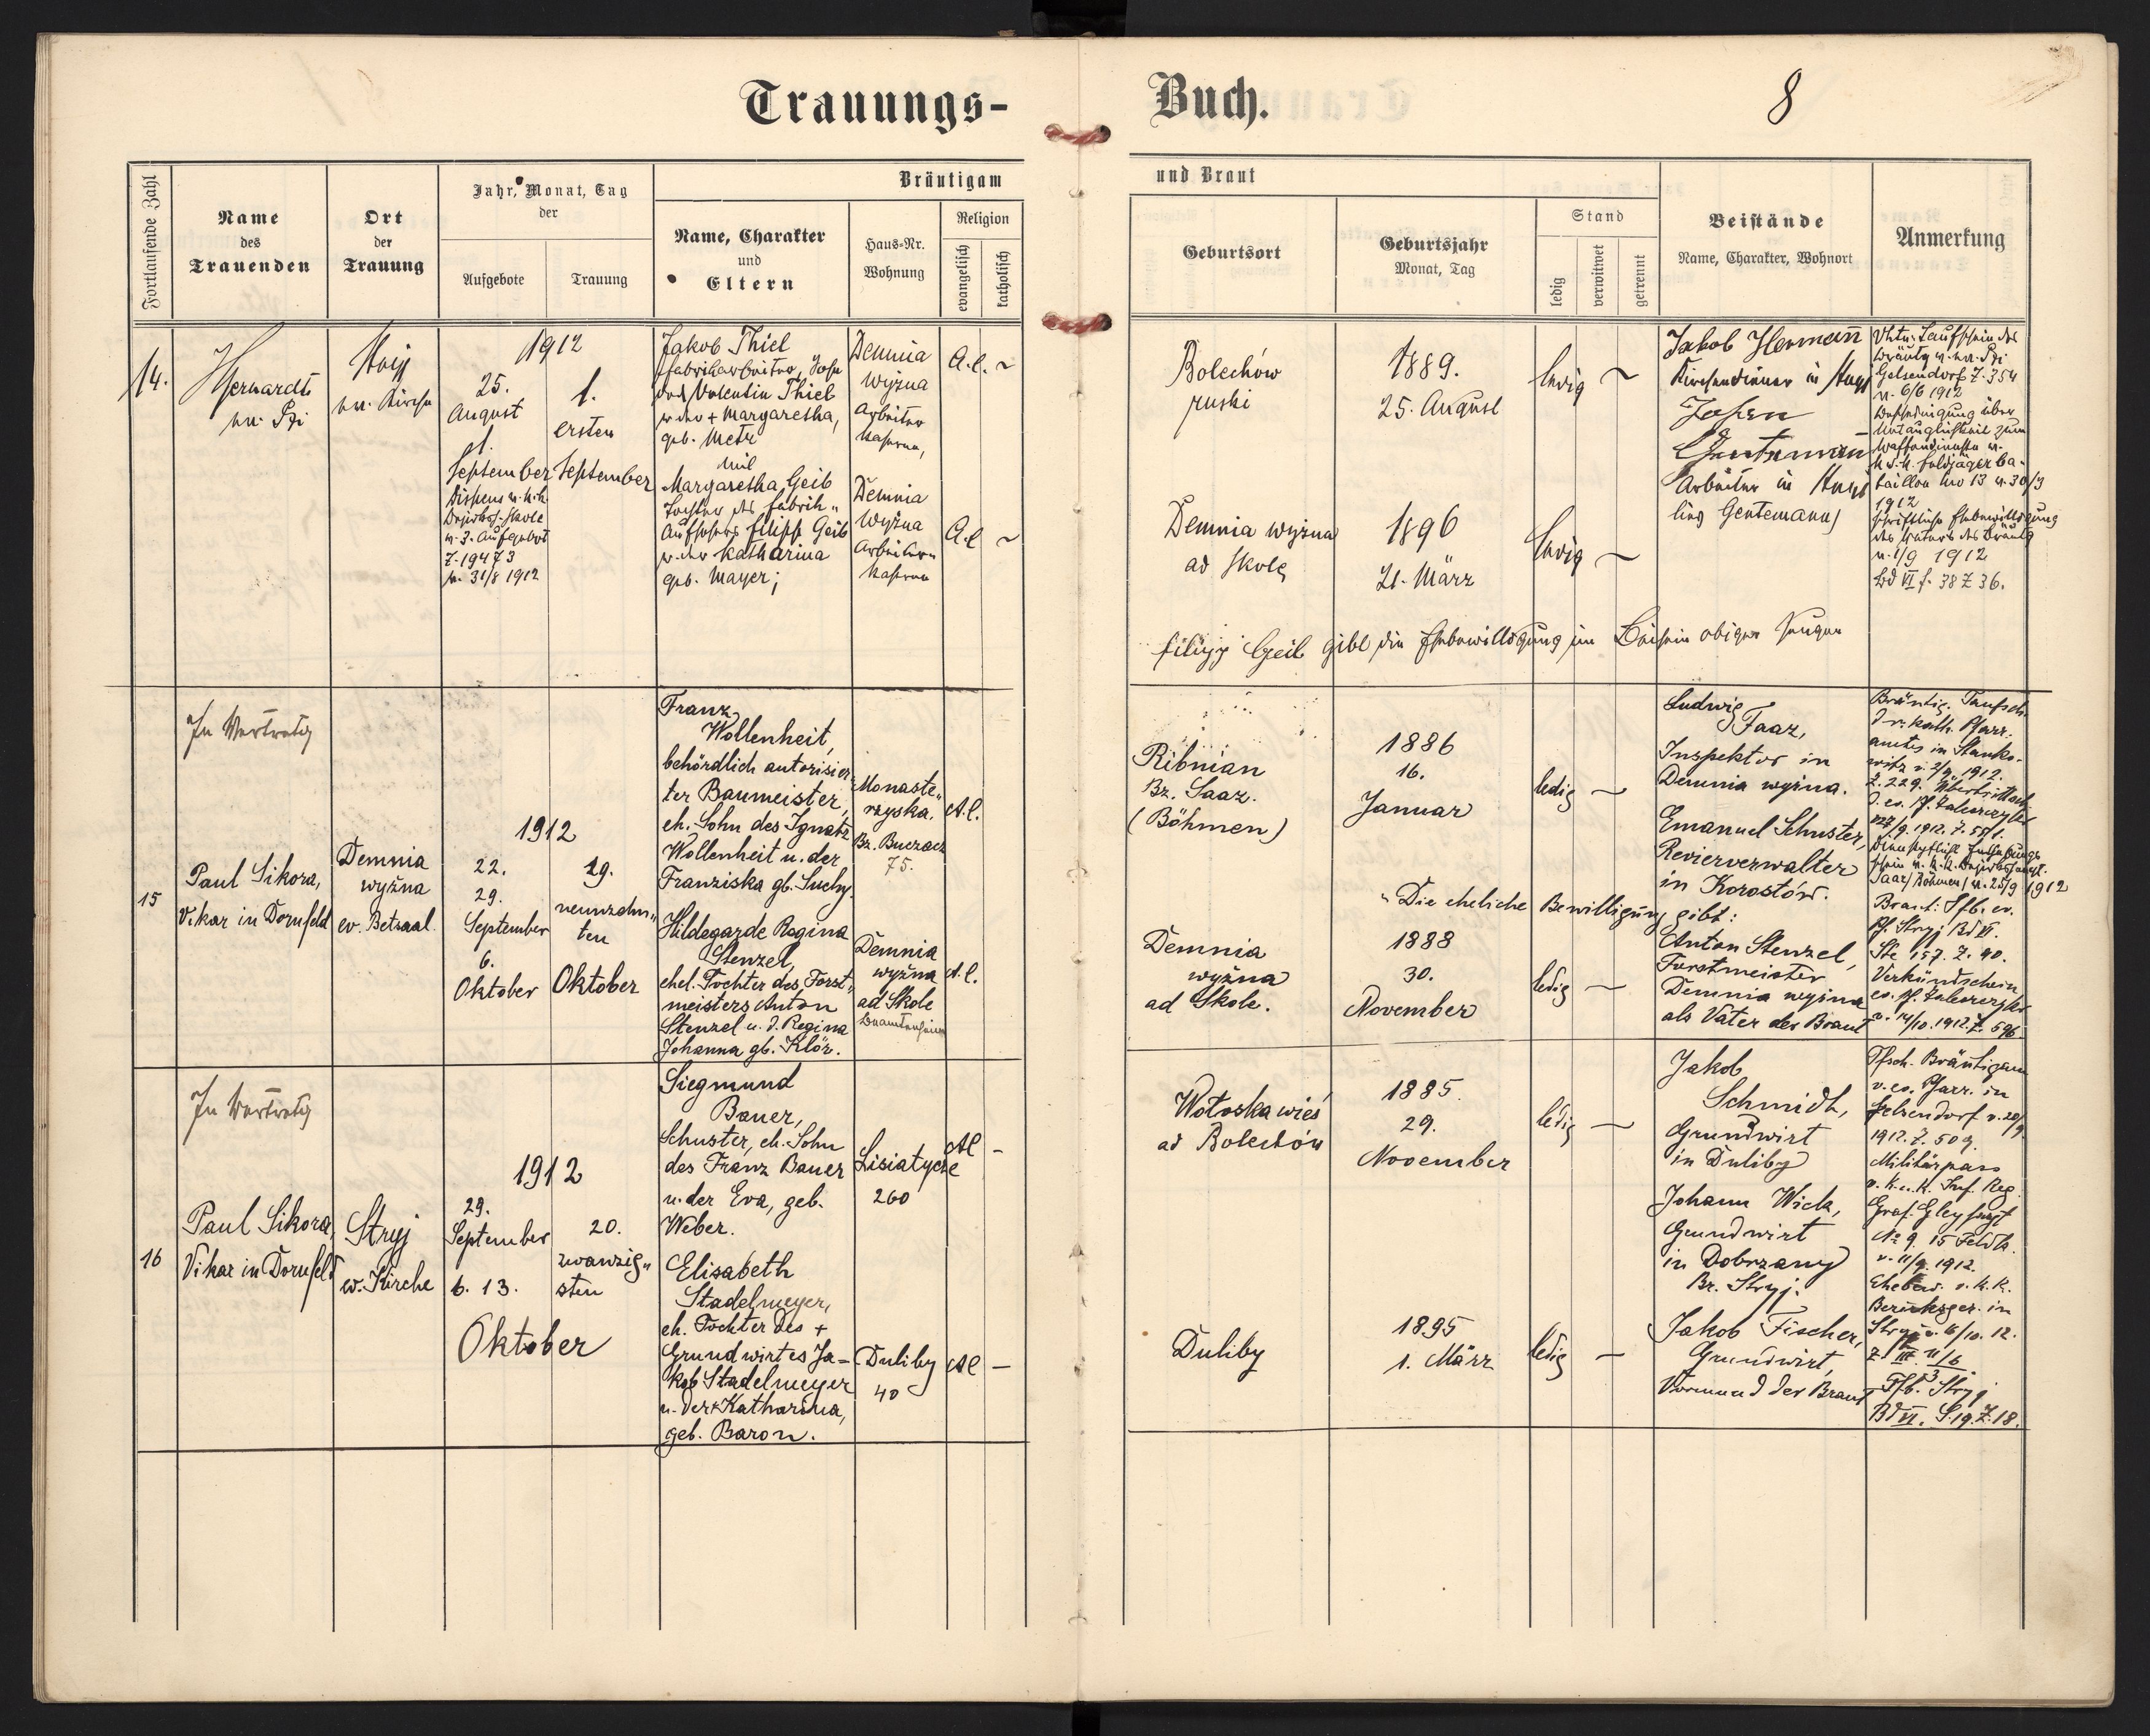 Trauungs-
Buch.
8
Fortlaufende Zahl
Name
des
Trauenden
Ort
der
Trauung
Jahr, Monat, Tag
der
Aufgebote
Trauung
Bräutigam
Name, Charakter
und
Eltern
Haus-Nr.
Wohnung
Religion
evangelisch
katholisch
und Braut
Geburtsort
Geburtsjahr
Monat, Tag
Stand
ledig
verwitwet
getrennt
Beistände
Name, Charakter, Wohnort
Anmerkung
14.
Stryj
ev. Kirche
1912
25.
August
1.
September
Z. 19473
v. 31/8 1912
1.
ersten
September
Jakob Thiel
Fabriksarbeiter, Sohn
des Valentin Thiel
u. der + Margaretha,
geb. Metz
mit
Margaretha Geib
Tochter des Fabrik-
Aufsehers Filipp Geib
u. der Katharina
geb. Mayer;
Demnia
wyżna
Arbeiter
Kaserne,
A.C. ~
Demnia
wyżna
Arbeiter
Kaserne
A.C. ~
Bolechów
ruski
1889.
25. August
ledig ~
Demnia wyżna
ad Skole
1896
21. März
ledig ~
Jakob Hermann
Kirchendiener in Stryj
Josef
Gentemann
Arbeiter in Stryj
(lies Gentemann)
Gelsendorf Z. 354
v. 6/6 1912
Bescheinigung über
Untauglichkeit zum
Waffendienste v.
k. k. Feldjägerba-
taillon No 13 v. 30/3
1912
schriftliche Ehebewilligung
des Vaters des Bräutig
v. 1/9 1912
Bd VI f. 38 Z 36.
Filipp Geib gibt die Ehebewilligung im Beisein obiger Zeugen
15
In Vertretg
Paul Sikora,
Vikar in Dornfeld
Demnia
wyżna
ev. Betsaal.
1912
22.
29.
September
6.
Oktober
19.
neunzehn-
ten
Oktober
Franz
Wollenheit,
behördlich autorisier-
ter Baumeister,
eh. Sohn des Ignatz
Wollenheit u. der
Franziska gb. Suchy.
Hildegarde Regina
Stenzel,
ehel. Tochter des Forst-
meisters Anton
Stenzel u. d. Regina
Johanna gb. Klör.
Monaste-
rzyska.
Bz. Buczacz
75.
A.C.
Demnia
wyżna
ad Skole
A.C.
Ribnian
Bz. Saaz.
(Böhmen)
1886
16.
Januar
ledig —
Demnia
wyżna
ad Skole.
1888
30.
November
ledig —
Ludwig
Faaz,
Inspektor in
Demnia wyżna.
Emanuel Schuster,
Revierverwalter
in Korostów.
Die eheliche Bewilligung gibt:
Anton Stenzel,
Forstmeister
Demnia wyżna
als Vater der Braut
Bräutig. Taufsch.
d. r. kath. Pfarr-
amtes in Stanko-
witz v. 2/9. 1912.
Z. 229.
Saaz/Böhmen/ v. 25/9 1912
Braut: Tfb. ev.
Pf. Stryj Bd VI.
Ste 157. Z. 90.
Verkündschein
v. 14/10. 1912. Z. 596.
16
In Vertretg
Paul Sikora,
Vikar in Dornfeld
Stryj
ev. Kirche
1912
29.
September
6. 13.
Oktober
20.
zwanzig-
sten
Siegmund
Bauer,
Schuster, eh. Sohn
des Franz Bauer
u. der Eva, geb.
Weber.
Elisabeth
Stadelmeyer,
eh. Tochter des +
Grundwirtes Ja-
kob Stadelmeyer
u. der + Katharina,
geb. Baron.
Lisiatycze
260
AC -
Duliby
40
AC —
Wołoska wieś
ad Bolechów
1885.
29.
November
ledig —
Duliby
1895
1. März
ledig —
Jakob
Schmidt,
Grundwirt
in Duliby
Johann Wick,
Grundwirt
in Dobrzany
Bz. Stryj.
Jakob Fischer,
Grundwirt,
Vormund der Braut
Tfsch. Bräutigam
v. ev. Pfarr. in
Gelsendorf v. 20/9.
1912. Z. 509.
Militärpass
v. K. u. K. Inf. Reg.
No 9. 15 Feldk.
v. 11/9. 1912.
Ehebew. v. K. K.
Bezirksger. in
Stryj v. 6/10. 12.
Tfb. Stryj
Bd VI. S. 19. Z. 18.